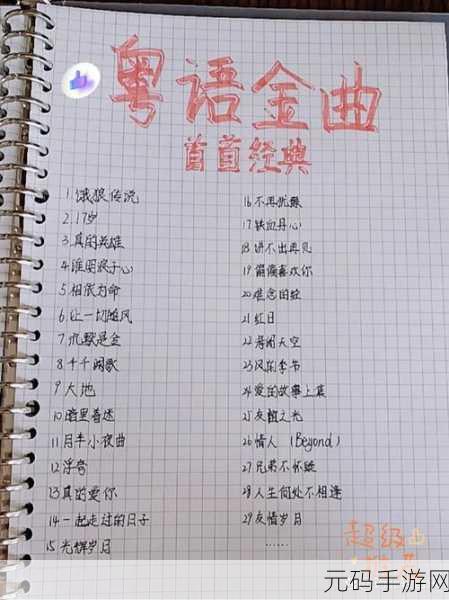 粤语金曲
首首经典
1.饿狼传说
2.17岁
3.真的英雄
4.谁明浪子心
5.相依为命
6.让一切随风
7.沉默是金
8.千千阙歌
9.大地
10.暗里着迷
11.月半小夜曲
12.浮夸
13.真的爱你
14.一起走过的日子
15.光辉岁月
16.不再犹豫
17.铁血丹心
18.讲不出再见
19.偏偏喜欢你
20.难念的经
21.红日
22.海阔天空
23.风的季节
24.爱的故事上集
25.友谊之光
26.情人 (Beyond)
27.兄弟不怀疑
28.人生何处不相逢
29.友情岁月
……
超级
元码手游网